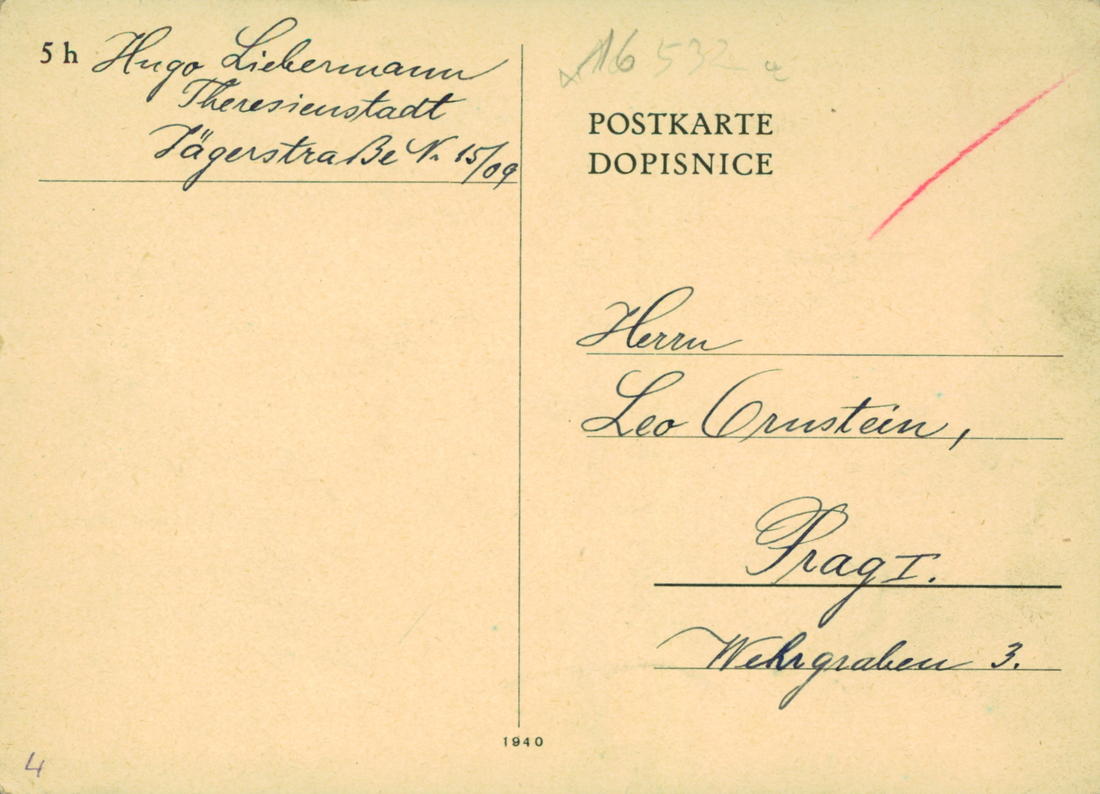 5 h Hugo Liebermann
Theresienstadt
Jägerstraße N. 15/09
16 532
POSTKARTE
DOPISNICE
Herrn
Leo Ornstein,
Prag I.
Wehrgraben 3.
1940
4